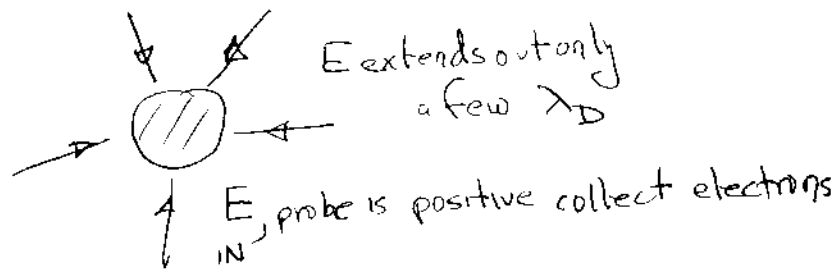 E extends out only
a few λD
E IN, probe is positive collect electrons